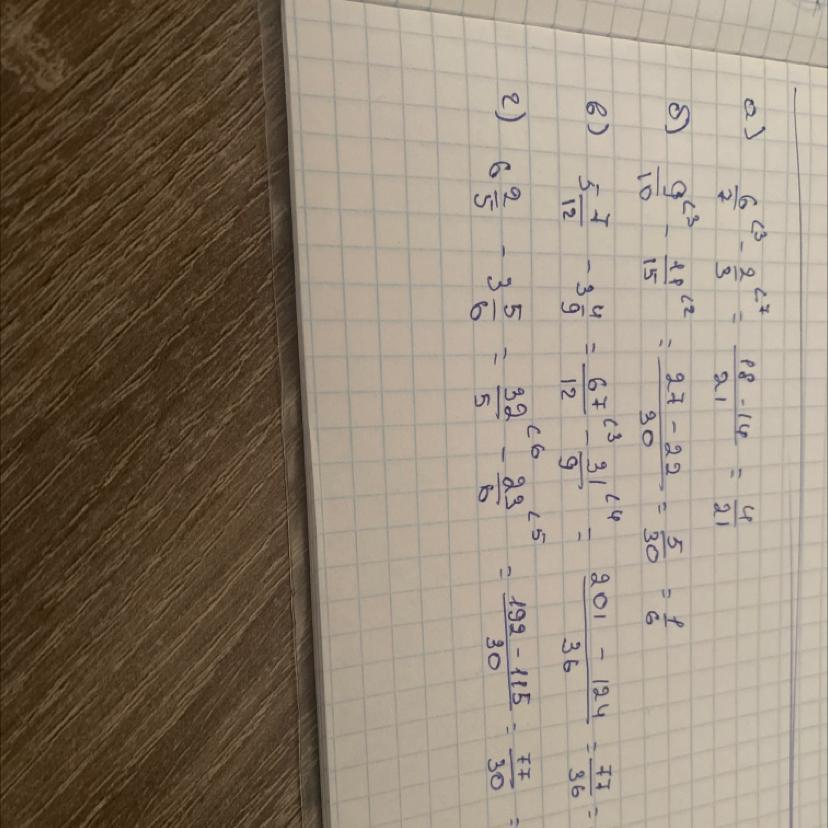 а) 6/7 ⁽³ - 2/3 ⁽⁷ = (18-14)/21 = 4/21
б) 9/10 ⁽³ - 11/15 ⁽² = (27-22)/30 = 5/30 = 1/6
в) 5 7/12 - 3 4/9 = 67/12 ⁽³ - 31/9 ⁽⁴ = (201-124)/36 = 77/36 =
г) 6 2/5 - 3 5/6 = 32/5 ⁽⁶ - 23/6 ⁽⁵ = (192-115)/30 = 77/30 =